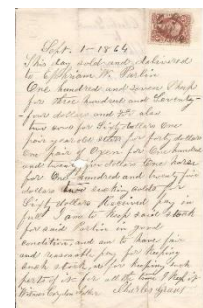 Sept. 1 - 1864
This day sold and delivered
to Ephriam W. Parlin
One hundred and seven Sheep
for three hundred and seventy-
four dollars and also
two cows for Sixty dollars One
four year old steer for forty dollars
One pair of Oxen for One hundred
and twenty five dollars One horse
for One hundred and twenty five
dollars two sucking colts for
Sixty dollars Received pay in
full I am to keep said stock
for said Parlin in good
condition and am to have fair
and reasonable pay for keeping
such stock
part of it for all the
Charles Grant